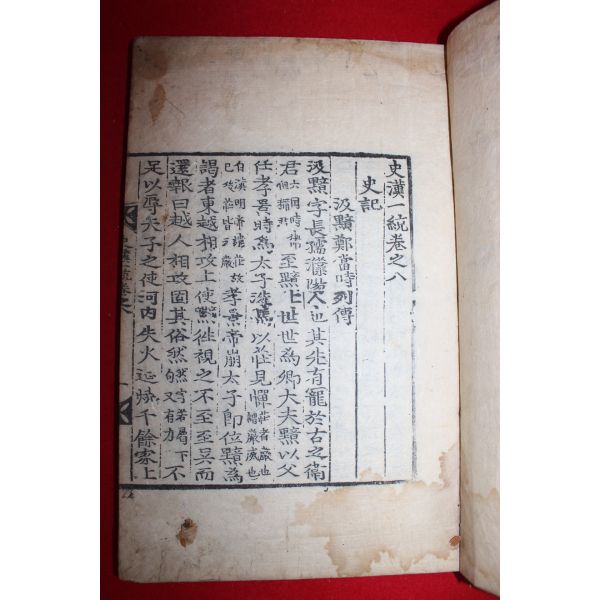 史漢一統卷之八
史記
汲黯鄭當時列傳
汲黯字長孺濮陽人也其先有寵於古之衛
君六國時衛但稱君至黯上世世爲卿大夫黯以父
任孝景時爲太子洗馬以莊見憚莊者嚴也謂嚴威也
自漢明帝諱莊故已後莊皆云嚴孝景帝崩太子卽位黯爲
謁者東越相攻上使黯往視之不至至吳而
還報曰越人相攻固其俗然
不
足以辱天子之使河内失火延燒千餘家上